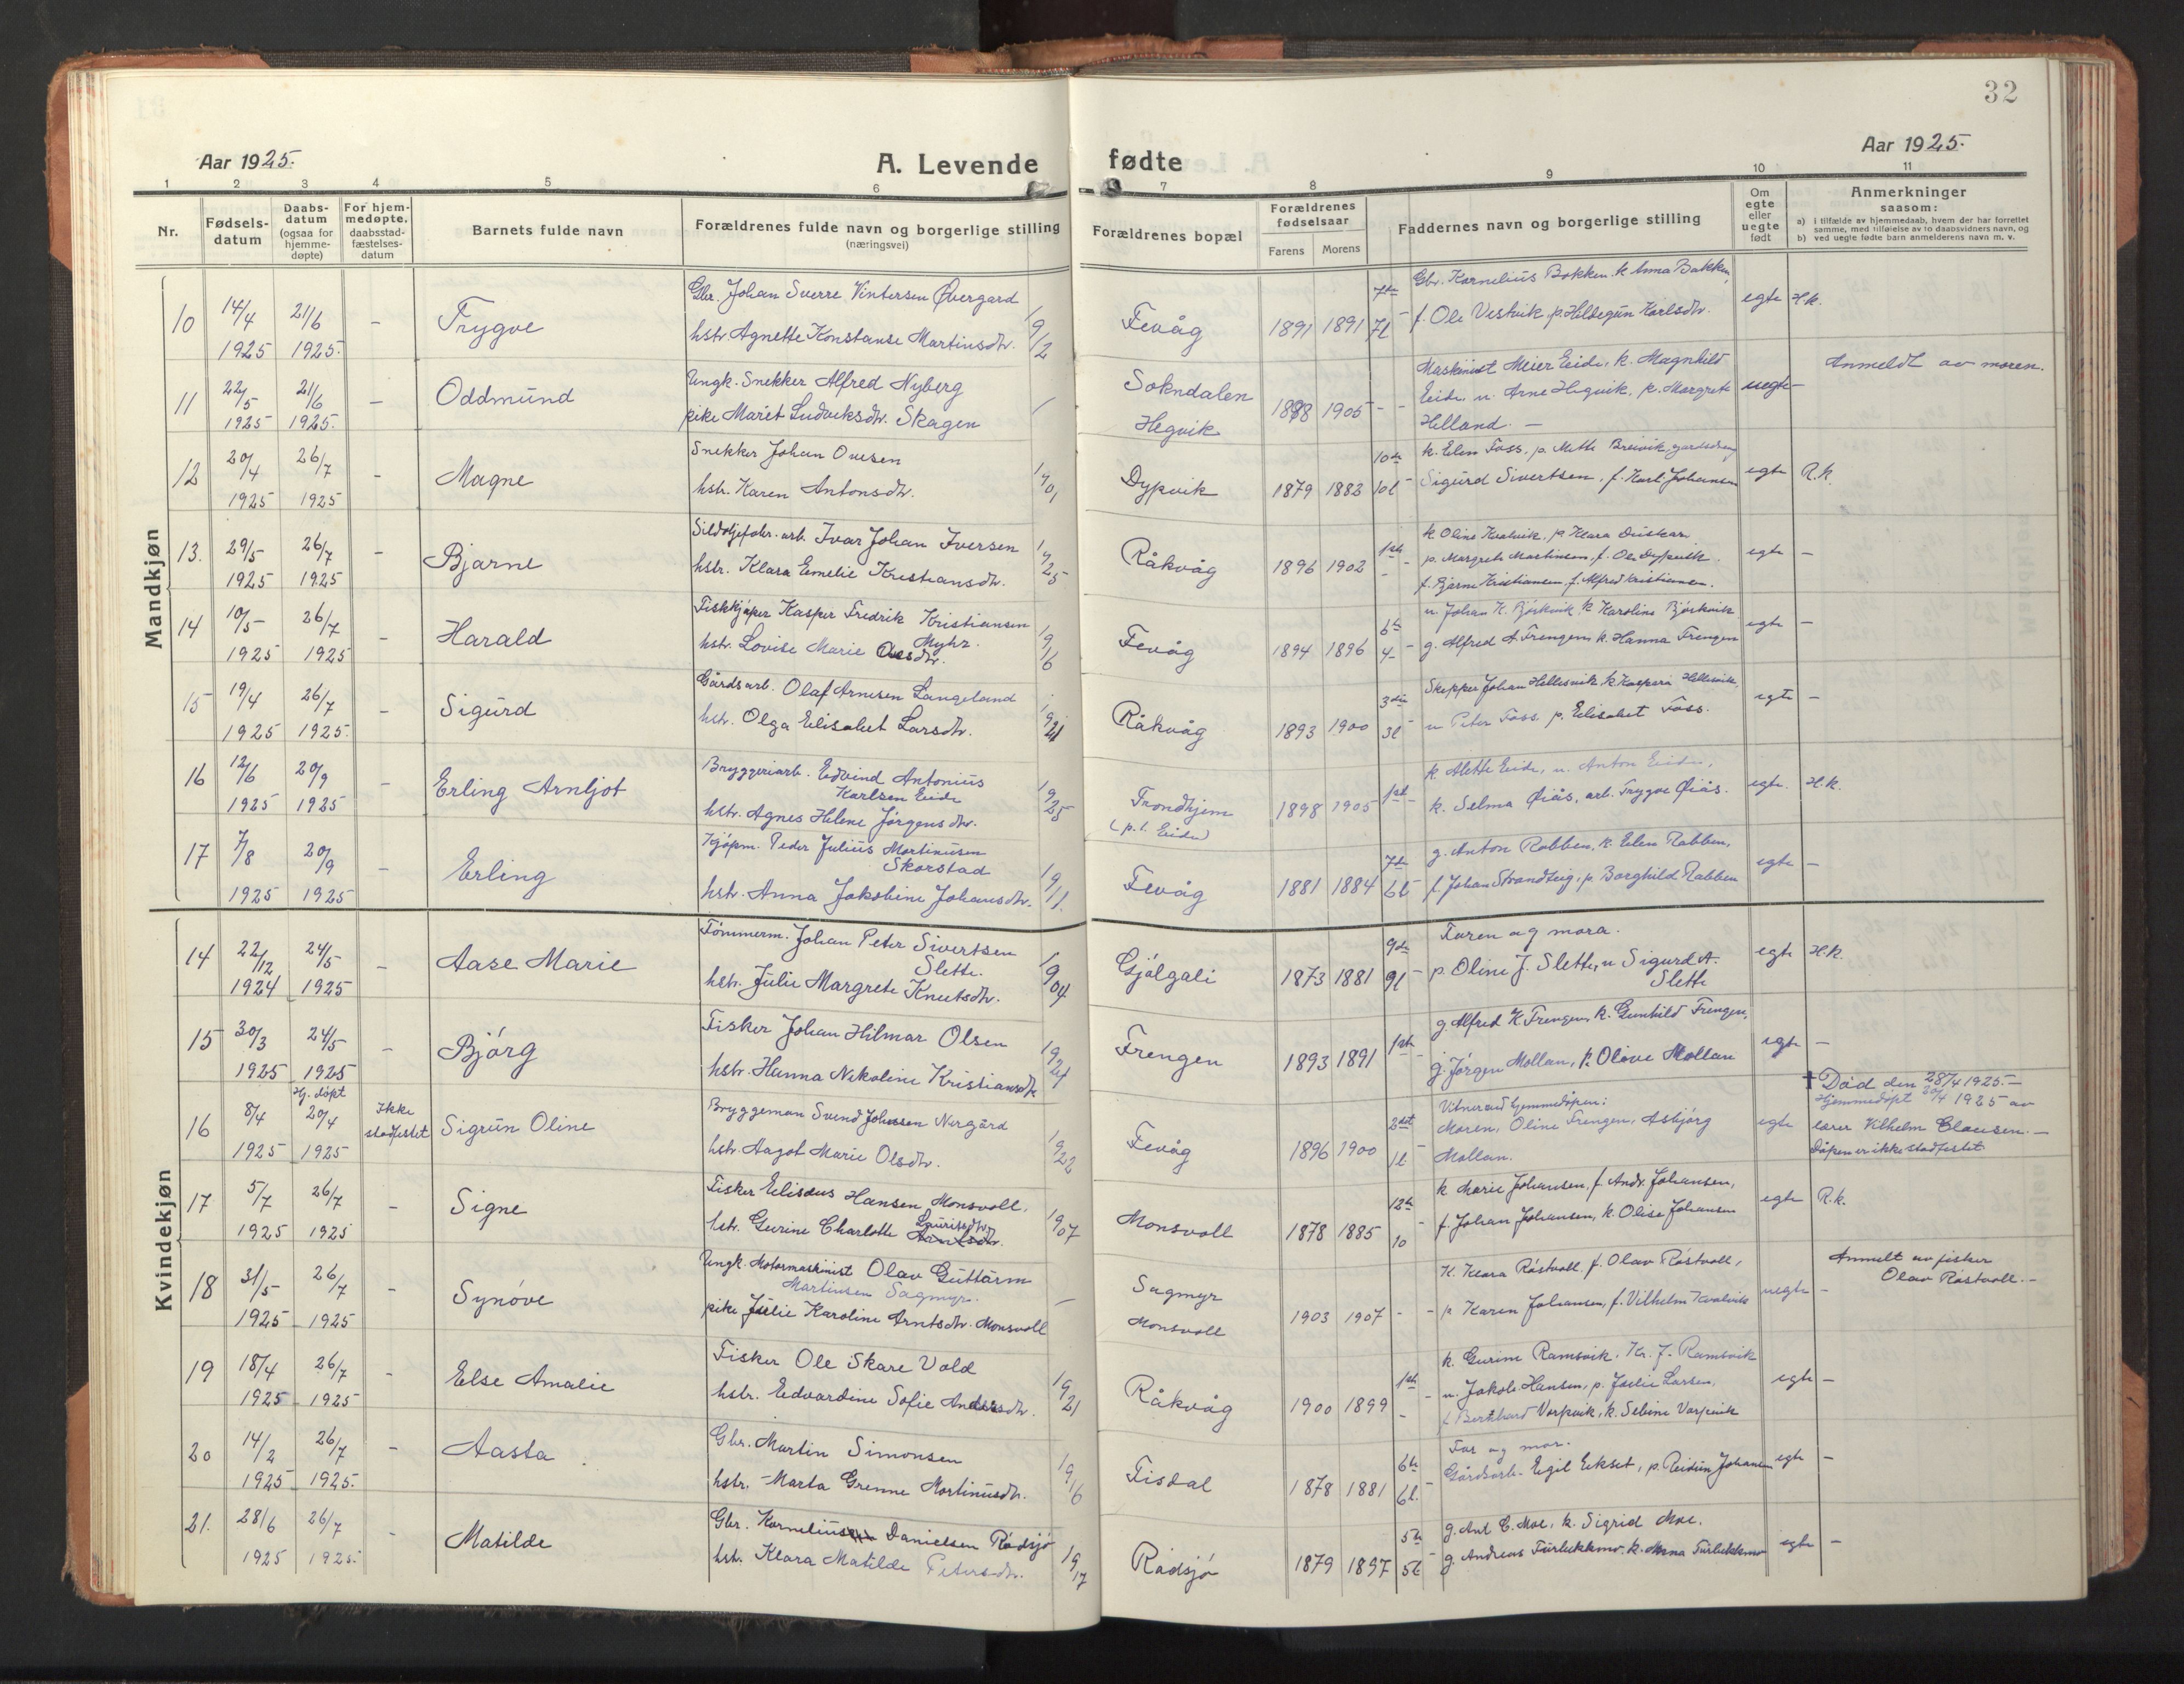 32
Aar 1925.
A. Levende fødte
Aar 1925.
1 2 3 4 5 6 7 8 9 10 11
Nr.
Fødsels-
datum
Daabs-
datum
(ogsaa for
hjemme-
døpte)
For hjem-
medøpte,
daabsstad-
fæstelses-
datum
Barnets fulde navn
Forældrenes fulde navn og borgerlige stilling
(næringsvei)
Forældrenes bopæl
Forældrenes
fødselsaar
Farens Morens
Faddernes navn og borgerlige stilling
Om
egte
eller
uegte
født
Anmerkninger
saasom:
a) i tilfælde av hjemmedaab, hvem der har forrettet
samme, med tilføielse av to daabsvidners navn, og
b) ved uegte fødte barn anmelderens navn m. v.
Mandkjøn
10 14/4 1925 21/6 1925. - Trygve
Gbr. Johan Sverre Vintersen Øvergard
hstr. Agnette Konstanse Martinsdtr. 19/12
Fevåg 1891 1891 7de 7l -
Gbr. Kornelius Bakken, k. Anna Bakken,
f. Ole Vestvik, p. Hildegun Karlsdtr.
egte H.k.
11 22/5 1925 21/6 1925. - Oddmund
Ungk. Snekker Alfred Nyberg
pike Maret Ludviksdtr. Skagen /
Sokndalen
Hegvik 1898 1905 - -
Maskinist Meier Eide, k. Magnhild
Eide, u. Arne Hegvik, p. Margrete
Helland. -
uegte -
Anmeldt av moren.
12 20/4 1925 26/7 1925 - Magne
Snekker Johan Ovesen
hstr. Karen Antonsdtr. 1901
Dypvik 1879 1883 10de 10l -
k. Elen Foss, p. Mette Breivik, gardsdreng
Sigurd Sivertsen, f. Karl Johansen
egte R.k.
13. 29/5 1925 26/7 1925 - Bjarne
Sildoljefabr. arb. Ivar Johan Iversen
hstr. Klara Emelie Kristiansdtr. 1925
Råkvåg 1896 1902 1ste - -
k. Oline Kvalvik, p. Klara Duskar
p. Margrete Martinsen, f. Ole Dypvik.
f. Bjarne Kristiansen, f. Alfred Kristiansen.
egte -
14 10/5 1925 26/7 1925 - Harald
Fiskkjøper Kasper Fredrik Kristiansen
Myhr.
hstr. Lovise Marie Olesdtr. 1916
Fevåg 1894 1896 6te 4 -
u. Johan K. Bjørkvik, k. Karoline Bjørkvik
g. Alfred A Frengen, k. Hanna Frengen
egte -
15 19/4 1925 26/7 1925. - Sigurd
Gårdsarb. Olaf Arnesen Langeland
hstr. Olga Elisabet Larsdtr. 1921
Råkvåg 1893 1900 3die 3l -
Skipper Johan Hellesvik, k. Kaspara Hellesvik,
u Peter Foss, p. Elisabet Foss.
egte -
16 12/6 1925 20/9 1925 - Erling Arnljot
Bryggeriarb. Eidvind Antonius
Karlsen Eide
hstr. Agnes Helene Jørgensdtr. 1925
Trondhjem
(p.t. Eide) 1898 1905 1ste -
k. Alette Eide, u. Anton Eide,
k. Selma Øiås, arb. Trygve Øiås.
egte. H.k.
17 7/8 1925 20/9 1925 - Erling
Kjøpm. Peder Julius Martinusen
Skorstad
hstr. Anna Jakobine Johansdtr. 1911.
Fevåg 1881 1884 7de 6l -
g. Anton Rabben, k. Elen Rabben,
f. Johan Strandteig, p. Borghild Rabben
egte -
Kvindekjøn
14 22/12 1924 24/5 1925 - Aase Marie
Tømmerm. Johan Peter Sivertsen
Slette.
hstr. Julie Margrete Knutsdtr. 1904
Gjølgali 1873 1881 9de 9l -
Faren og mora.
p. Oline J. Slette, u Sigurd A.
Slette
egte H.k.
15 30/3 1925 24/5 1925 - Bjørg
Fisker Johan Hilmar Olsen
hstr. Hanna Nikoline Kristiansdtr. 1924
Frengen 1893 1891 1ste -
g. Alfred K Frengen, k. Gunhild Frengen,
g. Jørgen Mollan, k. Olave Mollan
egte -
16 8/4 1925 Hj. døpt 20/4 1925 Ikke
stadfestet Sigrun Oline
Bryggeman Svend Johnsen Nergård
hstr. Aagot Marie Olsdtr. 1922
Fevåg 1896 1900 2det 1l -
Vitner ved hjemmedåpen:
Moren, Oline Frengen, Asbjørg
Mollan.
egte
† Død den 28/4 1925. -
Hjemmedøpt 20/4 1925 av
lærer Vilhelm Clausen. -
Dåpen er ikke stadfestet
17 5/7 1925 26/7 1925 - Signe
Fisker Elisæus Hansen Monsvoll.
hstr. Gurine Charlotte Lauritsdtr. 1907
Monsvoll 1878 1885 12te 10 -
k Marie Johansen, f. Andr. Johansen,
f. Johan Johansen, k. Olise Johansen
egte R.k.
18 31/5 1925 26/7 1925 - Synøve
Ungk. Motormaskinist Olav Guttorm
Martinsen Sagmyr.
pike Julie Karoline Arntsdtr. Monsvoll -
Sagmyr
Monsvoll 1903 1907 - -
K. Klara Røstvoll f. Olav Røstvoll,
p Karen Johansen, f. Vilhelm Kvalvik
uegte -
Anmelt av fisker
Olav Røstvoll. -
19 18/4 1925 26/7 1925 - Else Amalie
Fisker Ole Skare Vold
hstr. Edvardine Sofie Andersdtr. 1921
Råkvåg 1900 1899 1ste - -
k. Gurine Ramsvik, Kr. J. Ramsvik
u. Jakob Hansen, p. Julie Larsen,
f. Bernhard Vorpvik, k. Sebine Vorpvik
egte -
20 14/2 1925 26/7 1925. - Aasta
Gbr. Martin Simonsen
hstr. Marta Grenne Martinusdtr. 1916
Fisdal 1878 1881 6te 6l. -
Far og mor.
Gårdsarb. Egil Eekset, p. Reidun Johansen
egte -
21. 28/6 1925 26/7 1925. - Matilde
Gbr. Kornelius Danielsen Rødsjø
hstr. Klara Matilde Petersdtr. 1917
Rødsjø 1879 1897 5te 5l -
g. Ant C. Moe, k. Sigrid Moe.
g. Andreas Furlukkmo, k. Anna Furlukkmo
egte -